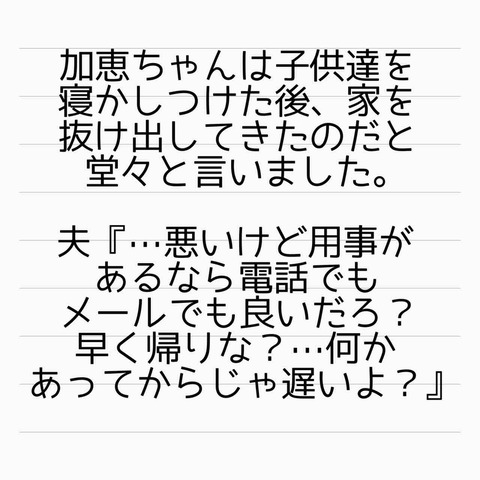 加恵ちゃんは子供達を
寝かしつけた後、家を
抜け出してきたのだと
堂々と言いました。
夫『…悪いけど用事が
あるなら電話でも
メールでも良いだろ？
早く帰りな？…何か
あってからじゃ遅いよ？』